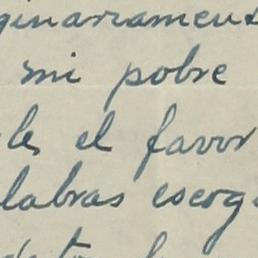 ginariament
mi pobre
les el favor
labras escog